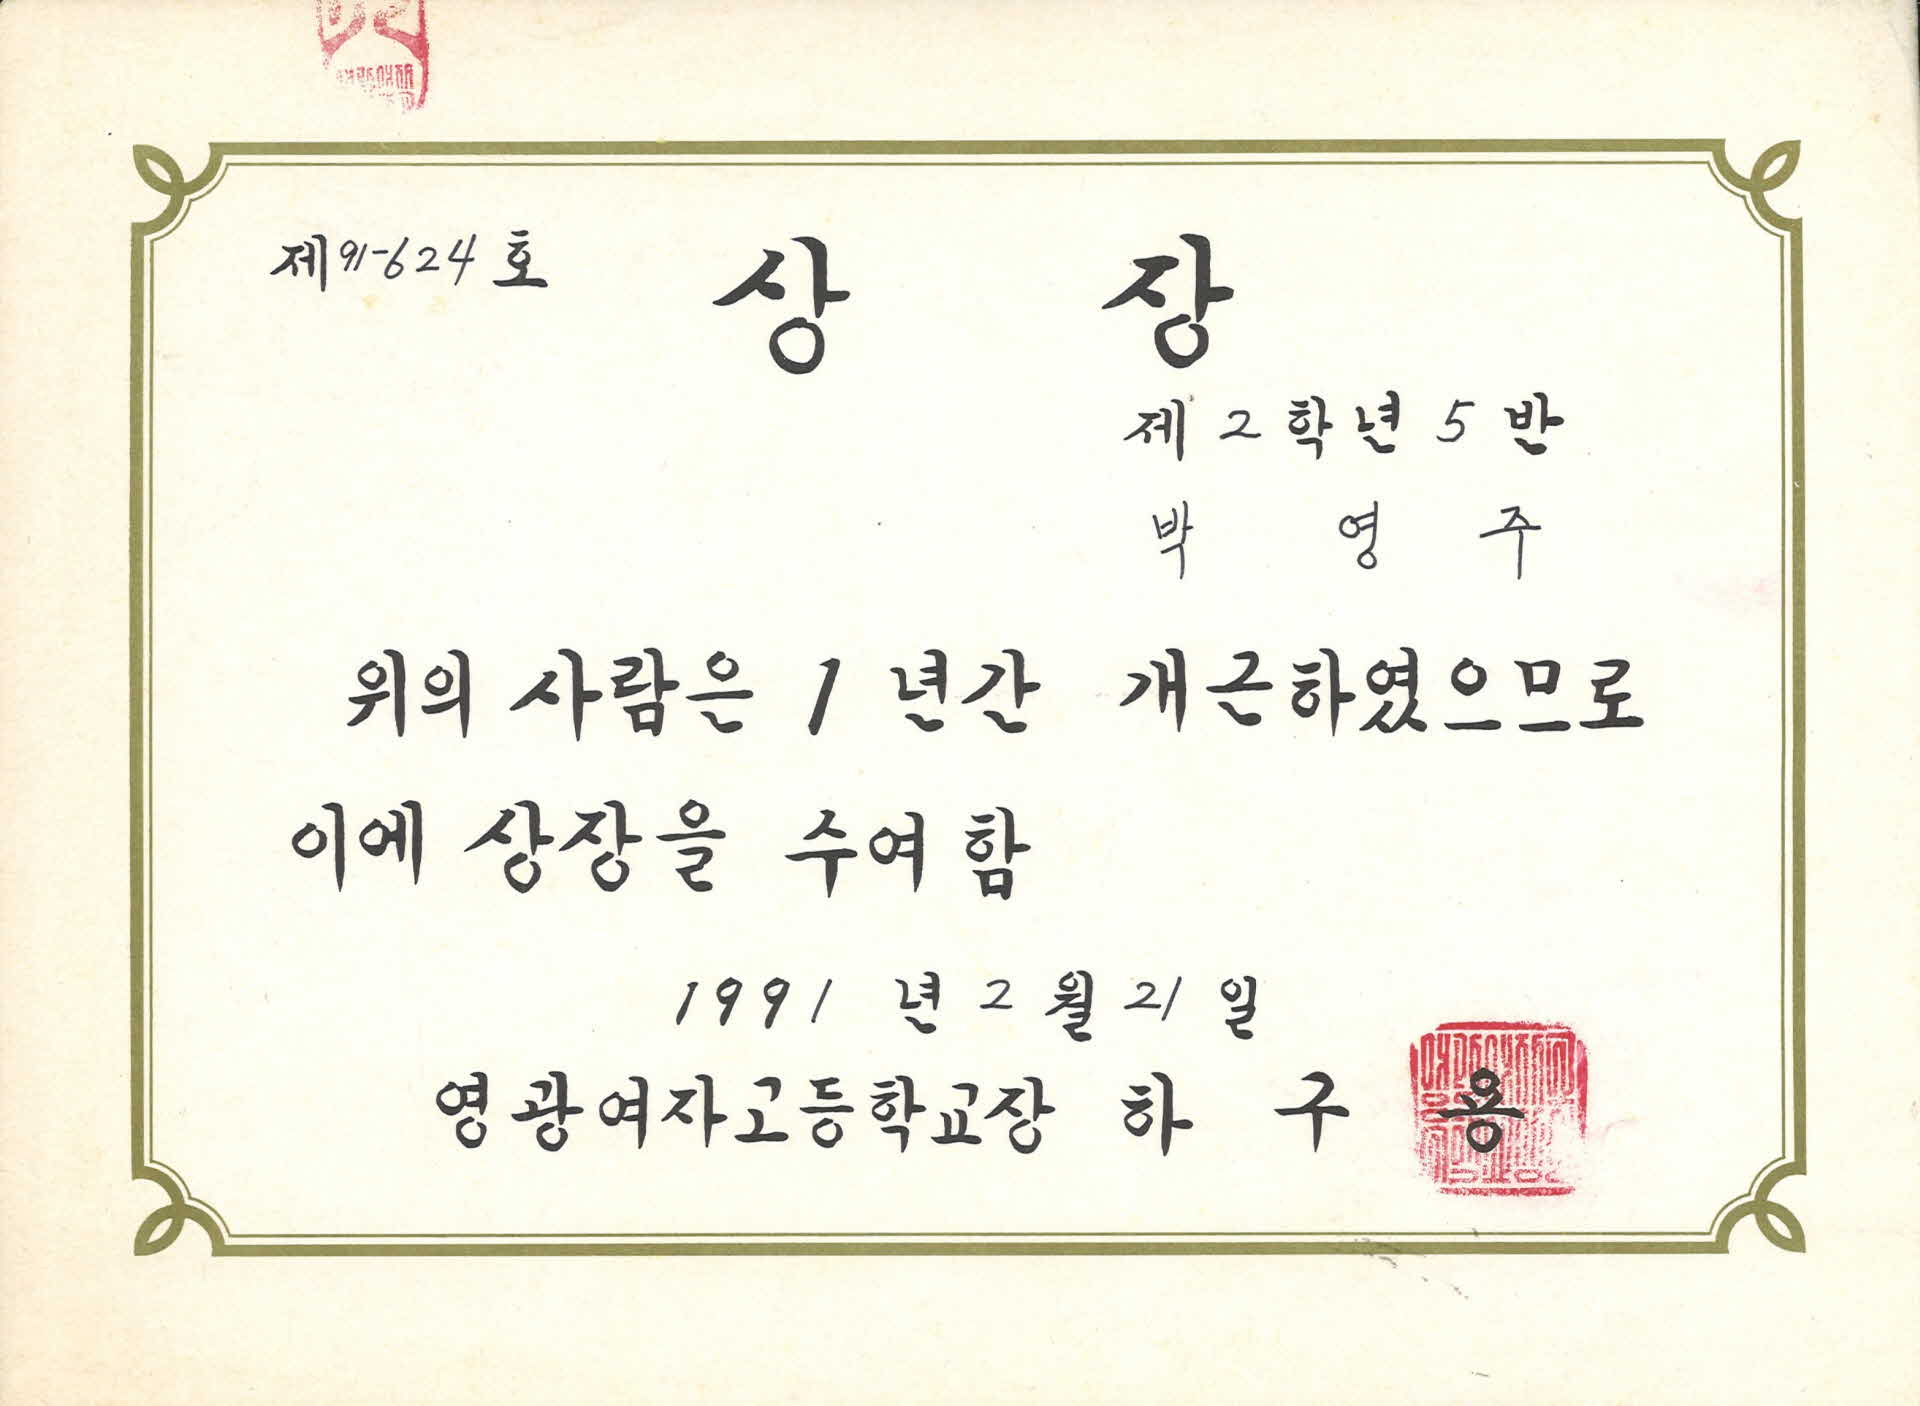 제91-624호
상 장
제2학년5반
박 영 주
위의 사람은 1년간 개근하였으므로
이에 상장을 수여함
1991년 2월 21일
영광여자고등학교장 하 구 용